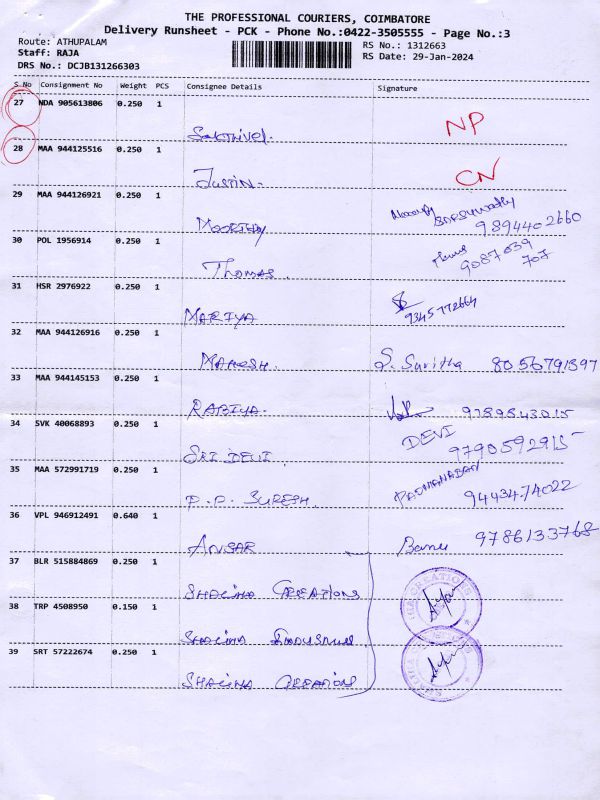 THE PROFESSIONAL COURIERS, COIMBATORE
Delivery Runsheet - PCK - Phone No.:0422-3505555 - Page No.:3
Route: ATHUPALAM RS No.: 1312663
Staff: RAJA RS Date: 29-Jan-2024
DRS No.: DCJB131266303
S.No Consignment No Weight PCS Consignee Details Signature
27 NDA 905613806 0.250 1
Sakthivel. NP
28 MAA 944125516 0.250 1
Justin. CN
29 MAA 944126921 0.250 1
MOORTHY 9894402660
30 POL 1956914 0.250 1
THOMAS. 9087039
707
31 HSR 2976922 0.250 1
MARIYA 9345772664
32 MAA 944126916 0.250 1
MAHESH. S. Suritha 8056791397
33 MAA 944145153 0.250 1
RABIYA. 9789843015
34 SVK 40068893 0.250 1
SRI DEVI. DEVI 9790592915
35 MAA 572991719 0.250 1
P.P. SURESH. PADMANABAN 9443474022
36 VPL 946912491 0.640 1
ANSAR Banu 9786133768
37 BLR 515884869 0.250 1
SHALIHA CREATIONS
38 TRP 4508950 0.150 1
SHALIHA
39 SRT 57222674 0.250 1
SHALIHA CREATIONS